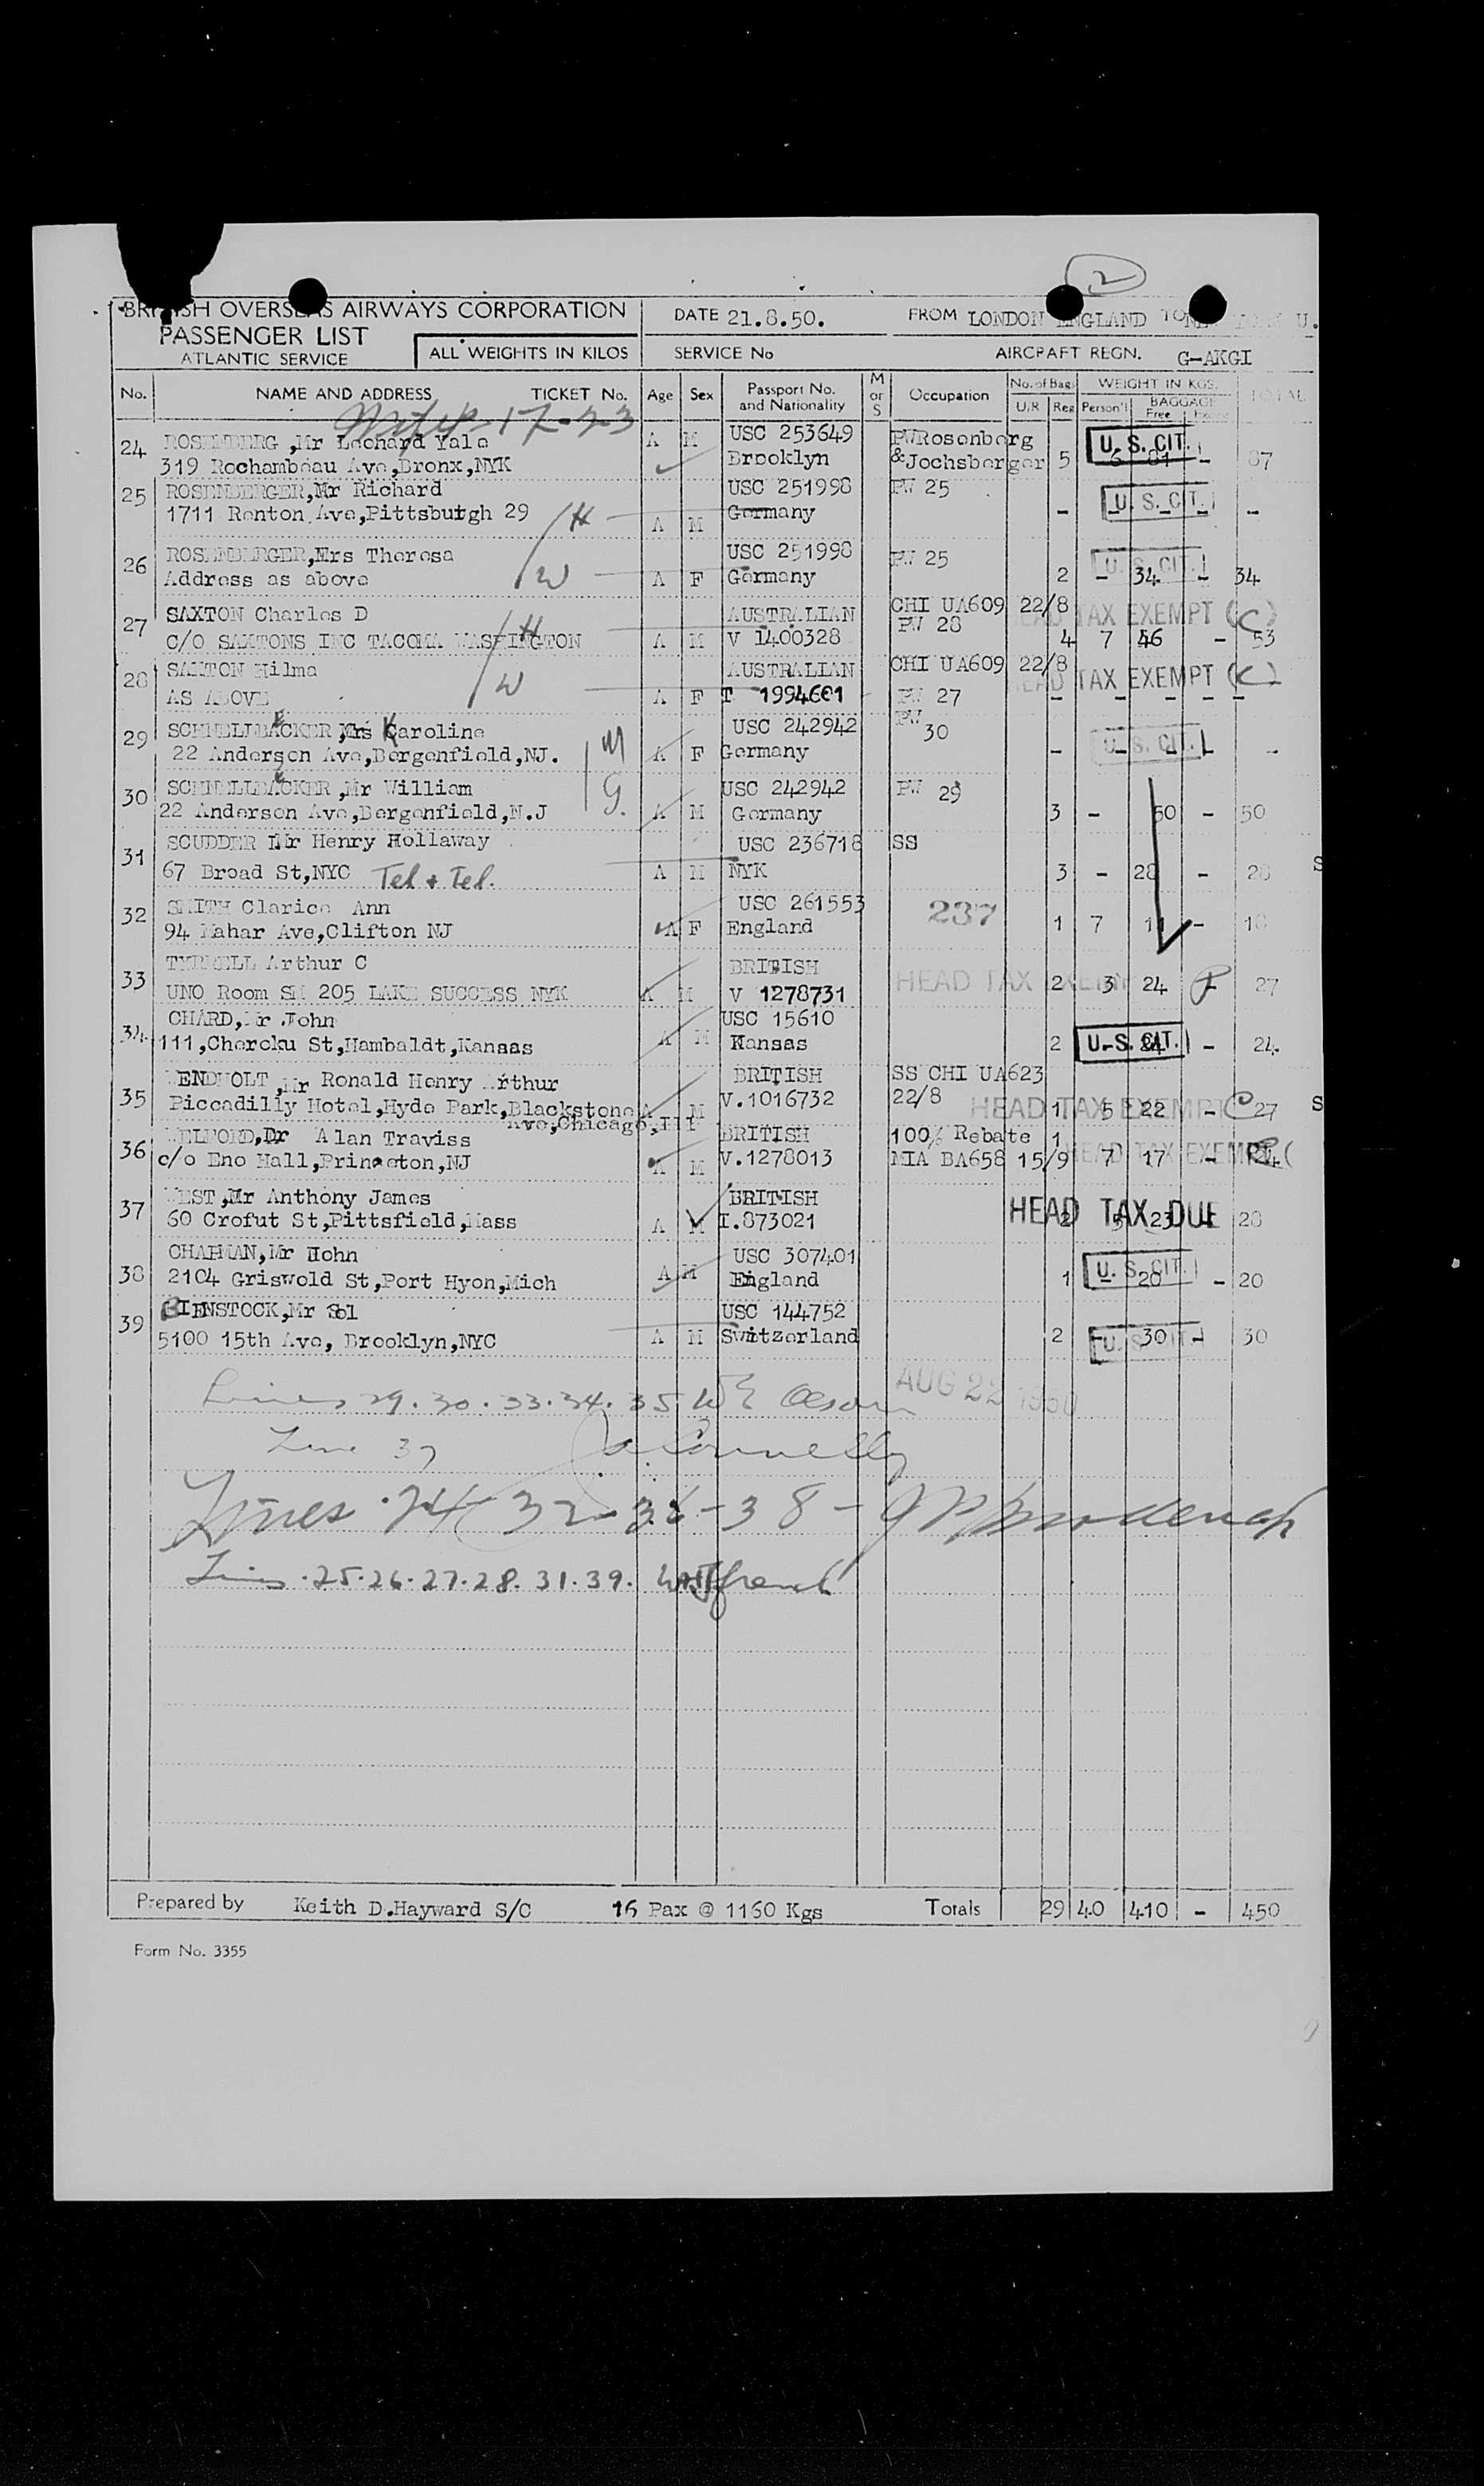 2
BRITISH OVERSEAS AIRWAYS CORPORATION
PASSENGER LIST
ATLANTIC SERVICE
ALL WEIGHTS IN KILOS
DATE 21.8.50.
FROM LONDON ENGLAND TO U.
SERVICE No
AIRCRAFT REGN. G-AKGI
No. NAME AND ADDRESS TICKET No. Age Sex Passport No. and Nationality M or S Occupation No. of Bag. U/R Reg WEIGHT IN KGS. Person'l BAGGAGE Free Excess TOTAL
17-23
24 ROSENBERG ,Mr Leonard Yale A M USC 253649 PW Rosenberg U. S. CIT.
319 Rochambeau Ave,Bronx,NYK Brooklyn &Jochsberger 5 6 81 - 87
25 ROSENBERGER,Mr Richard USC 251998 PW 25 U. S. CIT.
1711 Renton Ave,Pittsburgh 29 H A M Germany - - - - -
26 ROSENBERGER,Mrs Theresa USC 251998 PW 25 U. S. CIT.
Address as above W A F Germany 2 - 34 - 34
27 SAXTON Charles D AUSTRALIAN CHI UA609 22/8 HEAD TAX EXEMPT (C)
C/O SAXTONS INC TACOMA WASHINGTON H A M V 1400328 PW 28 4 7 46 - 53
28 SAXTON Hilma AUSTRALIAN CHI UA609 22/8 HEAD TAX EXEMPT (C)
AS ABOVE W A F T 1994661 PW 27 - - - - -
29 SCHNELLBACKER ,Mrs Karoline USC 242942 PW 30
22 Anderson Ave,Bergenfield,NJ. M A F Germany - U. S. CIT. -
30 SCHNELLBACKER ,Mr William USC 242942 PW 29
22 Anderson Ave,Bergenfield,N.J G. A M Germany 3 - 50 - 50
31 SCUDDER Mr Henry Hollaway USC 236718 SS
67 Broad St,NYC Tel + Tel. A M NYK 3 - 28 - 28 S
32 SMITH Clarice Ann USC 261553 237
94 Mahar Ave,Clifton NJ A F England 1 7 11 - 18
33 TYRRELL Arthur C BRITISH HEAD TAX EXEMPT
UNO Room SM 205 LAKE SUCCESS NYK A M V 1278731 2 3 24 27
34 CHARD,Mr John USC 15610
111,Cheroku St,Hambaldt,Kansas A M Kansas 2 U. S. CIT. 24 - 24
35 WENDHOLT ,Mr Ronald Henry Arthur BRITISH SS CHI UA623
Piccadilly Hotel,Hyde Park,Blackstone A M V.1016732 22/8 HEAD TAX EXEMPT C 1 5 22 - 27 S
Ave,Chicago,Ill
36 WELFORD,Dr Alan Traviss BRITISH 100% Rebate 1
c/o Eno Hall,Princeton,NJ A M V.1278013 MIA BA658 15/9 HEAD TAX EXEMPT 7 17 - 24
37 WEST ,Mr Anthony James BRITISH HEAD TAX DUE
60 Crofut St,Pittsfield,Mass A M I.873021 2 5 23 - 28
38 CHAPMAN,Mr John USC 307401 U. S. CIT.
2104 Griswold St,Port Hyon,Mich A M England 1 20 - 20
39 BIENSTOCK,Mr Sol USC 144752
5100 15th Ave, Brooklyn,NYC A M Switzerland 2 U. S. CIT. 30 - 30
Lines 29. 30. 33. 34. 35 W E Olson AUG 22 1950
Line 37 Connelly
Lines 24-32-36-38-
Lines .25.26.27.28. 31.39. French
Prepared by Keith D.Hayward S/C 16 Pax @ 1160 Kgs Totals 29 40 410 - 450
Form No. 3355